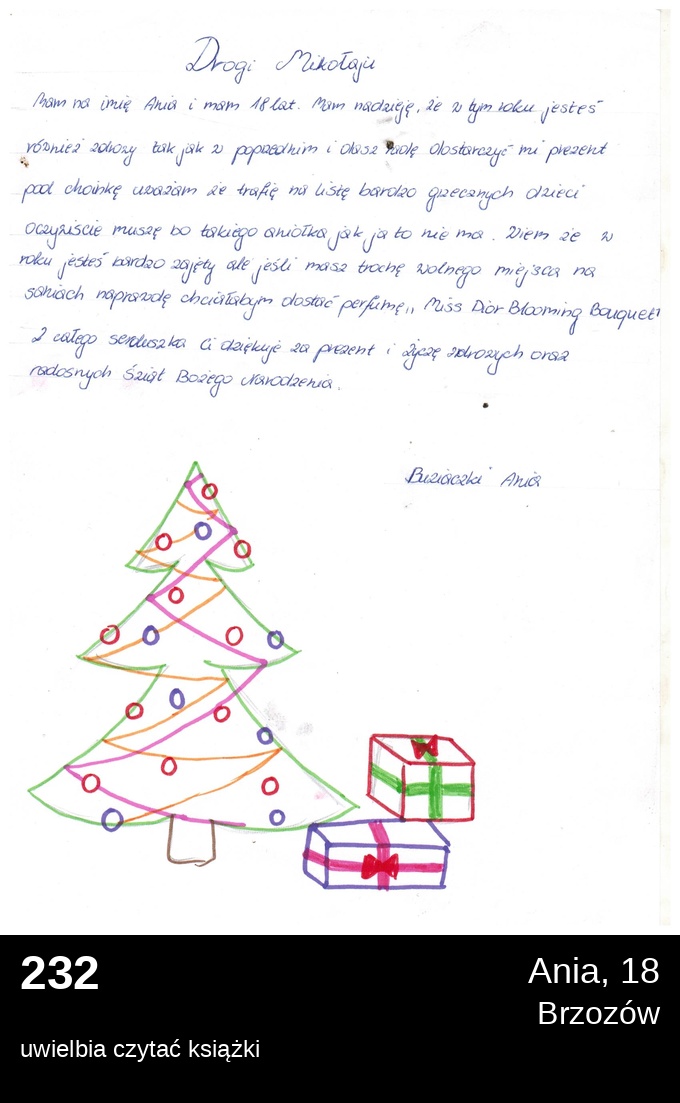 Drogi Mikołaju
Mam na imię Ania i mam 18 lat. Mam nadzieję, że w tym roku jesteś
również zdrowy tak jak w poprzednim i dasz radę dostarczyć mi prezent
pod choinkę uważam że trafię na listę bardzo grzecznych dzieci
oczywiście muszę bo takiego aniołka jak ja to nie ma. Wiem że w
roku jesteś bardzo zajęty ale jeśli masz trochę wolnego miejsca na
saniach naprawdę chciałabym dostać perfumę,, Miss Dior Blooming Bouquet"
Z całego serduszka Ci dziękuje za prezent i życzę zdrowych oraz
radosnych Świąt Bożego Narodzenia.
Buziaczki Ania
232
Ania, 18
Brzozów
uwielbia czytać książki